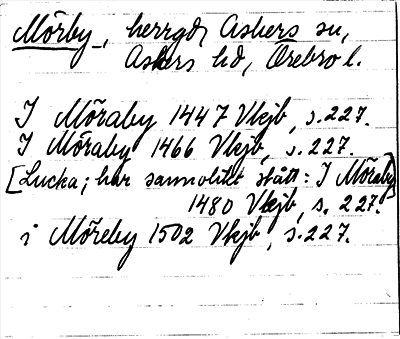 Mörby, herrgd, Askers sn,
Askers hd, Örebro l.
I Möraby 1447 Vkjb, s. 227.
I Möraby 1466 Vkjb, s. 227.
[Lucka; har sannolikt stått: I Möraby]
1480 Vkjb, s. 227.
i Möreby 1502 Vkjb, s. 227.